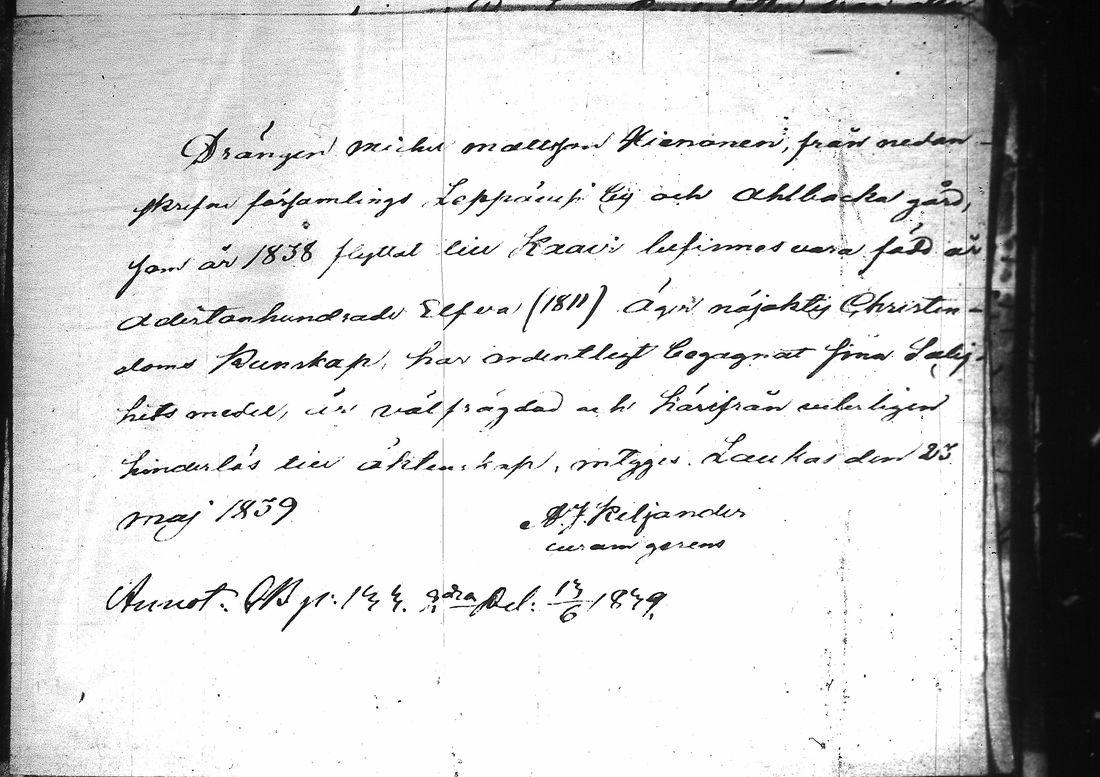 Drängen Michel Mattsson Hienonen, från nedan-
skrefne församlings Leppävesi by och Ahlbacka gård,
som år 1838 flyttat till Kaavi befinnes vara född år
Adertonhundrade Elfva (1811) Äger nöjaktig Christen-
doms Kunskap, har ordentligt begagnat sina Salig-
hets medel, är välfrägdad och härifrån veterligen
hinderlös till äktenskap, intygas. Laukas den 23
Maj 1839
A. J. Kiljander
curam gerens
Annot. CB p: 133. 2:dra Del. 13/6 1839.